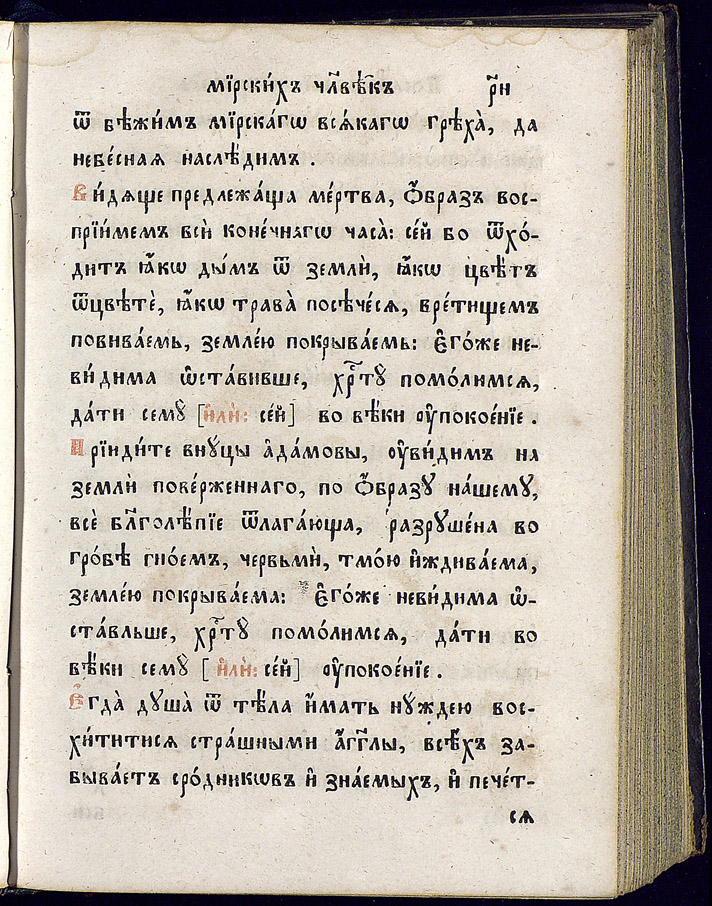 мїрски́хъ члв҃ѣкъ рн҃и
ѿ бѣжи́мъ мїрска́гѡ вся́кагѡ грѣха̀, да
небе́сная наслѣ́димъ .
Ви́дяще предлежа́ща ме́ртва, ѻ҆́бразъ вос-
прїи́мемъ всѝ коне́чнягѡ часа̀: се́й бо ѿхо́-
дитъ ꙗ҆́кѡ ды́мъ ѿ землѝ, ꙗ҆́кѡ цвѣ́тъ
ѿцвѣтѐ, ꙗ҆́кѡ трава̀ посѣче́ся, вре́тищемъ
повива́емь, земле́ю покрыва́емь: є҆го́же не-
ви́дима ѡ҆ста́вивше, хрⷭ҇тꙋ̀ помо́лимся,
да́ти семꙋ̀ [и҆лѝ: се́й] во вѣ́ки ᲂу҆покое́нїе .
Прїиди́те внꙋ́цы а҆да́мовы, ᲂу҆ви́димъ на
землѝ пове́рженнаго, по ѻ҆́бразꙋ на́шемꙋ,
всѐ блг҃олѣ́пїе ѿлага́юща, разрꙋше́на во
гро́бѣ гно́емъ, червьмѝ, тмо́ю и҆ждива́ема,
земле́ю покрыва́ема: є҆го́же неви́дима ѡ҆-
ста́вльше, хрⷭ҇тꙋ̀ помо́лимся, да́ти во
вѣ́ки семꙋ̀ [ и҆лѝ: се́й] ᲂу҆покое́нїе .
Є҆гда̀ дꙋша̀ ѿ тѣ́ла и҆́мать нꙋ́ждею вос-
хи́титися стра́шными а҆́гг҃лы, всѣ́хъ за-
быва́етъ сро́дникѡвъ и҆ зна́емыхъ, и҆ пече́т-
ся